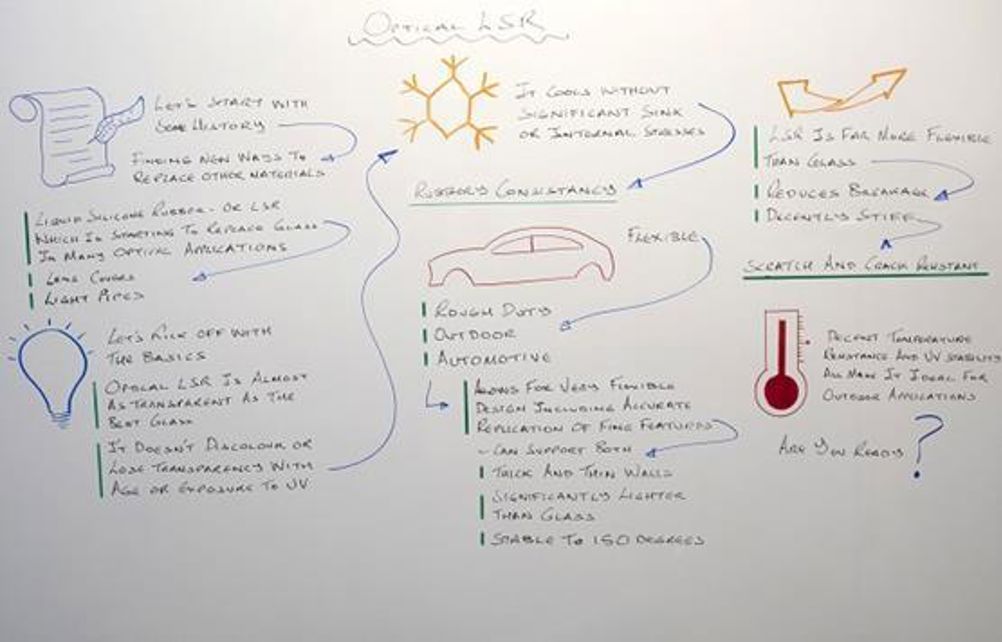 OPTICAL LSR
LET'S START WITH
SOME HISTORY
FINDING NEW WAYS TO
REPLACE OTHER MATERIALS
LIQUID SILICONE RUBBER - OR LSR
WHICH IS STARTING TO REPLACE GLASS
IN MANY OPTICAL APPLICATIONS
LENS COVERS
LIGHT PIPES
LET'S KICK OFF WITH
THE BASICS
OPTICAL LSR IS ALMOST
AS TRANSPARENT AS THE
BEST GLASS
IT DOESN'T DISCOLOUR OR
LOSE TRANSPARENCY WITH
AGE OR EXPOSURE TO UV
IT COOLS WITHOUT
SIGNIFICANT SINK
OR INTERNAL STRESSES
RUBBERY CONSISTANCY
FLEXIBLE
ROUGH DUTY
OUTDOOR
AUTOMOTIVE
ALLOWS FOR VERY FLEXIBLE
DESIGN INCLUDING ACCURATE
REPLICATION OF FINE FEATURES
- CAN SUPPORT BOTH
THICK AND THIN WALLS
SIGNIFICANTLY LIGHTER
THAN GLASS
STABLE TO 150 DEGREES
LSR IS FAR MORE FLEXIBLE
THAN GLASS
REDUCES BREAKAGE
DECENTLY STIFF
SCRATCH AND CRACK RESISTANT
DECENT TEMPERATURE
RESISTANCE AND UV STABILITY
ALL MAKE IT IDEAL FOR
OUTDOOR APPLICATIONS
ARE YOU READY?